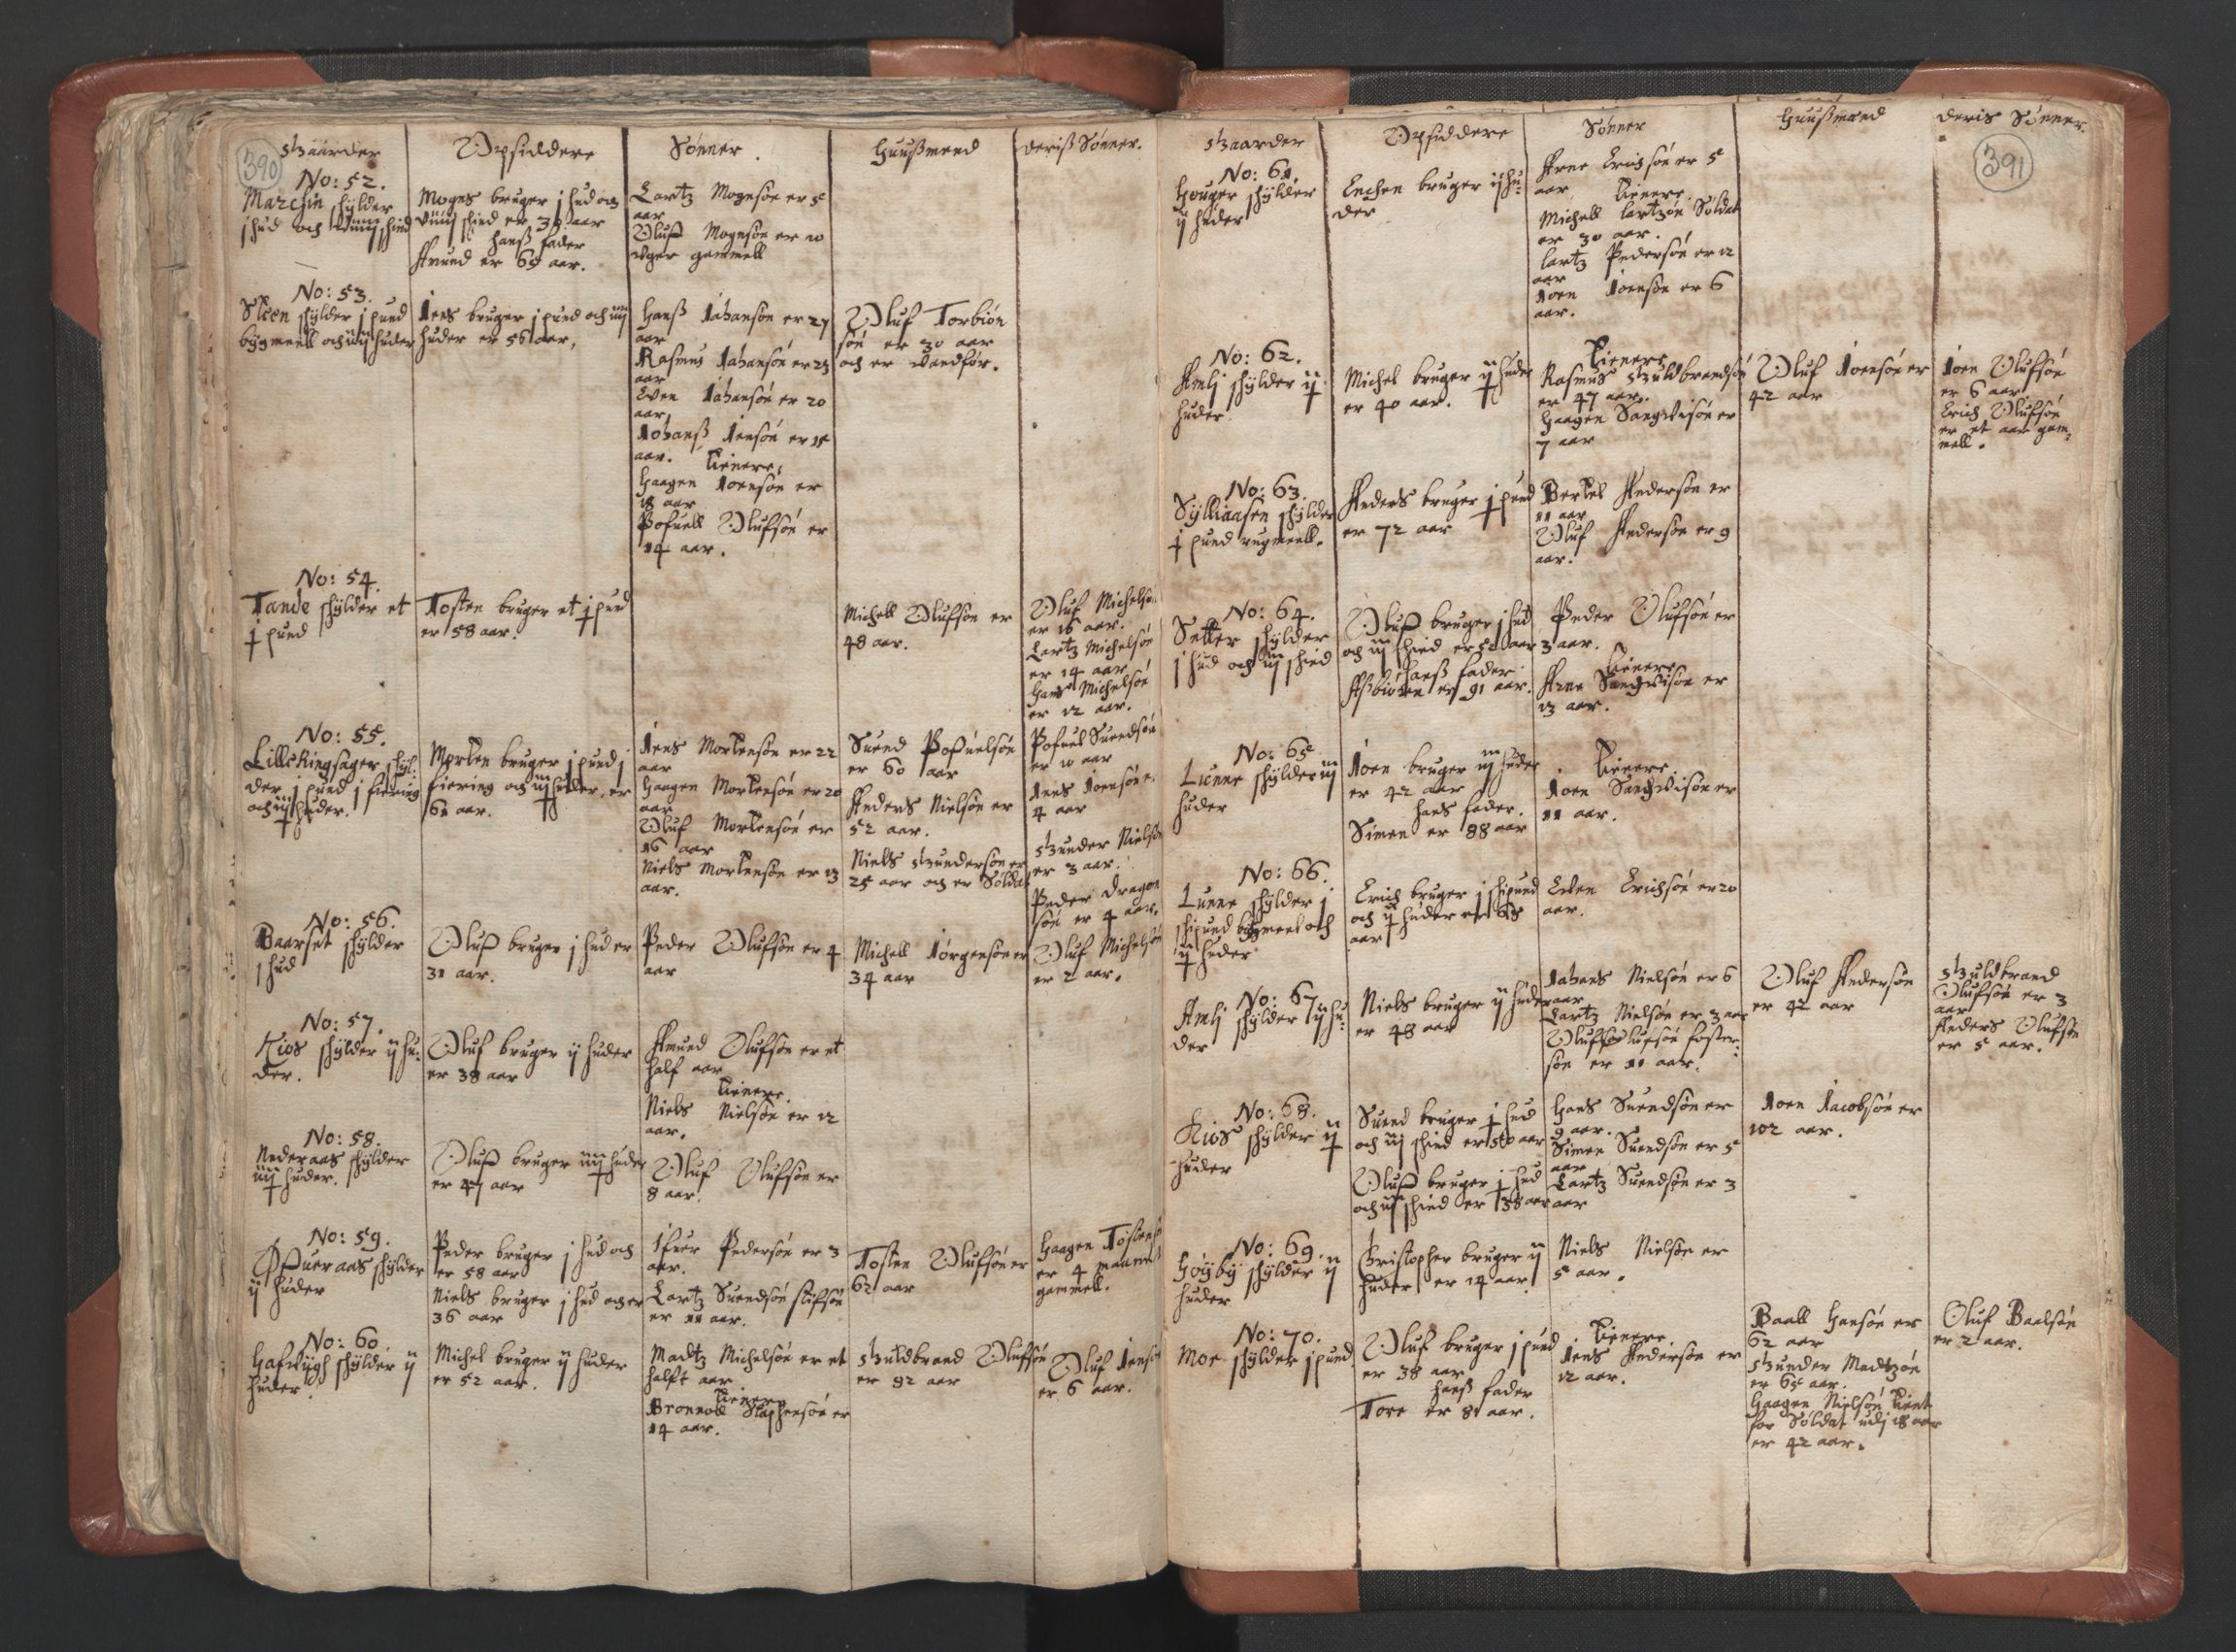 390
Gaarder
Opsiddere
Sønner.
Huußmend
deriß Sønner.
No: 52.
Marchin schylder
j hud och viiij schind
Mogns bruger j hud och
viiij schind er 39 aar
hanß fader
Amund er 69 aar.
Lartz Mognsøn er 5
aar
Oluff Mognsøn er 10
uger gammell
No: 53.
Steen schylder j pund
bygmeell och iiij huder
Jens bruger j pund och iiij
huder er 56 aar,
Hanß Johansøn er 27
aar
Rasmus Johansøn er 23
aar
Even Johansøn er 20
aar,
Johanß Jensøn er 18
aar.
Tienere,
Haagen Joensøn er
18 aar
Pofuell Olufsøn er
14 aar.
Oluf Torbiøn
søn er 30 aar
och er vandfør.
No: 54.
Tande schylder et
j pund
Tosten bruger et j pund
er 58 aar.
Michell Oluffsøn er
48 aar.
Oluf Michelsøn
er 16 aar.
Lartz Michelsøn
er 14 aar
Hans Michelsøn
er 12 aar.
No: 55.
Lille Ringsager schyl:
der j pund j fiering
och iij huder.
Morten bruger j pund j
fiering och iij huder, er
61 aar.
Jens Mortensøn er 22
aar
Haagen Mortensøn er 20
aar
Oluf Mortensøn er
16 aar
Niels Mortensøn er 13
aar.
Suend Pofuelsøn
er 60 aar
Anders Nielsøn er
52 aar.
Niels Gundersøn er
25 aar och er Soldat
Pofuel Suendsøn
er 10 aar
Jens Joensøn er
4 aar
Gunder Nielsøn
er 3 aar.
Peder Dragon
søn er 4 aar.
No: 56.
Baarset schylder
j hud
Oluff bruger j hud er
31 aar.
Peder Olufsøn er 4
aar
Michell Jørgensøn er
34 aar
Oluf Michelsøn
er 2 aar.
No: 57.
Kios schylder ij hu:
der.
Oluf bruger ij huder
er 38 aar
Amund Olufsøn er et
half aar
Tienere.
Niels Nielsøn er 12
aar.
No: 58.
Nederaas schylder
iiij huder.
Oluff bruger iiij huder
er 47 aar
Oluf Olufsøn er
8 aar.
No: 59.
Øfueraas schylder
ij huder
Peder bruger j hud och
er 58 aar
Niels bruger j hud och er
36 aar
Ifuer Pedersøn er 3
aar.
Lartz Suendsøn stifsøn
er 11 aar.
Tosten Olufsøn er
62 aar
Haagen Tostensøn
er 4 maaneder
gammell.
No: 60
Hafrygh schylder ij
huder.
Michel bruger ij huder
er 52 aar.
Madtz Michelsøn er et
halft aar
Tienere
Bronnoll Staphensøn er
14 aar.
Guldbrand Olufsøn
er 92 aar
Oluf Jensøn
er 6 aar.
391
Gaarder
Opsiddere
Sønner
Huußmend
deris Sønner.
No: 61.
Houger schylder
ij huder
Enchen bruger ij hu:
der
Arne Erichsøn er 5
aar
Tienere
Michell Lartzøn Soldat
er 30 aar.
Lartz Pedersøn er 12
aar
Joen Joensøn er 6
aar.
No: 62.
Amlj schylder ij
huder
Michel bruger ij huder
er 40 aar.
Tienere
Rasmus Guldbrandsøn
er 47 aar.
Haagen Sangvisøn er
7 aar
Oluf Joensøn er
42 aar
Joen Olufsøn
er 6 aar
Erich Olufsøn
er et aar gam:
mell.
No: 63.
Sylliaasen schylder
j pund rugmeell.
Anders bruger j pund
er 72 aar
Bertel Andersøn er
11 aar
Oluf Andersøn er 9
aar.
No: 64.
Setter schylder
j hud och iij schind
Oluff bruger j hud
och iij schind er 50 aar
hanß fader
Aßbiøren er 91 aar.
Peder Olufsøn er
3 aar.
Tienere
Arne Sangvisøn er
13 aar.
No: 65
Lunne schylder iij
huder
Joen bruger iij huder
er 42 aar
hans fader.
Simen er 88 aar
Tienere
Joen Sangvisøn er
11 aar.
No: 66.
Lunne schylder j
schipund bygmeel och
ij huder
Erich bruger j schipund
och ij huder er 68
aar
Even Erichsøn er 20
aar.
No: 67
Amlj schylder ij hu:
der
Niels bruger ij huder
er 48 aar
Johans Nielsøn er 6
aar
Lartz Nielsøn er 3 aar
Oluf Olufsøn foster:
søn er 11 aar.
Oluf Andersøn
er 42 aar
Guldbrand
Olufsøn er 3
aar
Anders Olufsøn
er 5 aar.
No: 68.
Kios schylder ij
huder
Suend bruger j hud
och iij schind er 50 aar
Oluff bruger j hud
och iij schind er 38 aar
Hans Suendsøn er
9 aar.
Simen Suendsøn er 5
aar
Lartz Suendsøn er 3
aar
Joen Jacobsøn er
102 aar.
No: 69.
Høyby schylder ij
huder
Christopher bruger ij
huder er 14 aar
Niels Nielsøn er
5 aar.
No: 70.
Moe schylder j pund
Oluf bruger j pund
er 38 aar
hanß fader
Tore er 81 aar.
Tienere
Jens Andersøn er
12 aar.
Baall Hansøn er
62 aar
Gunder Madtzøn
er 65 aar.
Haagen Nielsøn tient
for Soldat udj 18 aar
er 42 aar.
Oluf Baalsøn
er 2 aar.